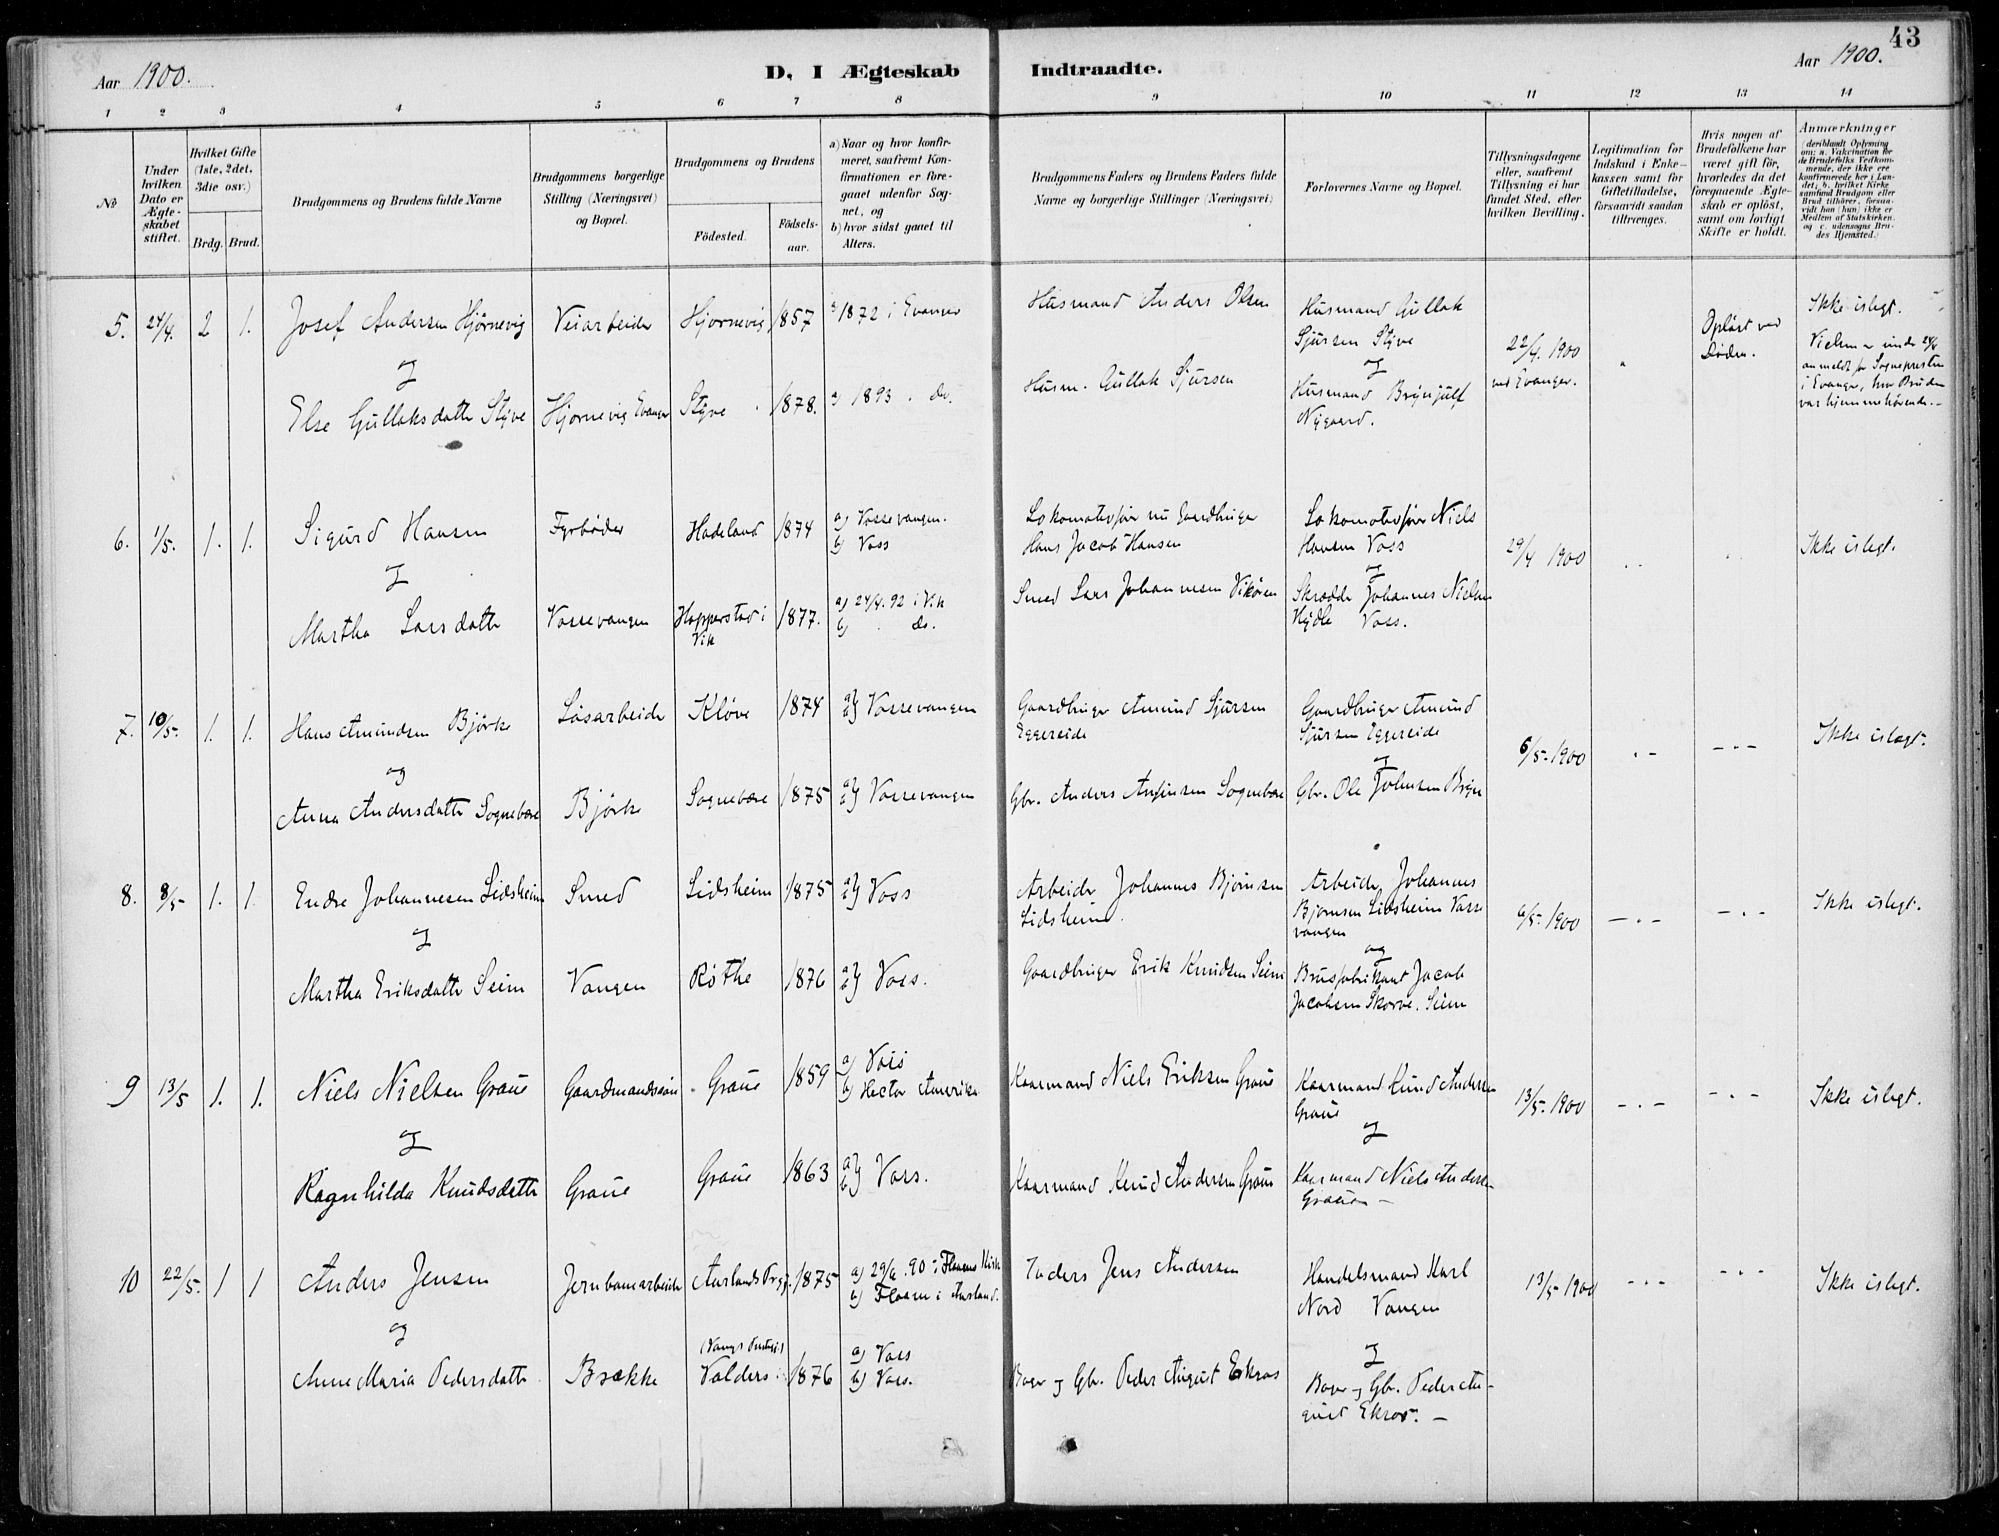 43
Aar 1900.
D. I Ægteskab Indtraadte.
Aar 1900.
1 2 3 4 5 6 7 8 9 10 11 12 13 14
No
Under hvilken Dato er Ægteskabet stiftet.
Hvilket Gifte (1ste, 2det, 3die osv.)
Brdg. Brud.
Brudgommens og Brudens fulde Navne
Brudgommens borgerlige Stilling (Næringsvei) og Bopæl.
Brudgommens og Brudens
Fødested.
Fødselsaar.
a) Naar og hvor konfirmeret, saafremt Konfirmationen er foregaaet udenfor Sognet, og
b) hvor sidst gaaet til Alters.
Brudgommens Faders og Brudens Faders fulde Navne og borgerlige Stillinger (Næringsvei)
Forlovernes Navne og Bopæl.
Tillysningsdagene eller, saafremt Tillysning ei har fundet Sted, efter hvilken Bevilling.
Legitimation for Indskud i Enkekassen samt for Giftetilladelse, forsaavidt saadan tiltrænges.
Hvis nogen af Brudefolkene har været gift før, hvorledes da det foregaaende Ægteskab er opløst, samt om lovligt Skifte er holdt.
Anmærkninger (deriblandt Oplysning om: a. Vakcination for de Brudefolks Vedkommende, der ikke ere konfirmerede her i Landet; b. hvilket Kirkesamfund Brudgom eller Brud tilhører, forsaavidt han (hun) ikke er Medlem af Statskirken, og c. udensogns Brudes Hjemsted.)
5. 24/4. 2 1. Josef Andersen Hjørnevig Veiarbeider Hjørnevig 1857 a) 1872 i Evanger Husmand Anders Olsen
Husmand Gullak Sjursen Styve
og
Husmand Brynjulf Nygaard.
22/4. 1900 ved Evanger.
Opløst ved Døden.
Ikke islegt.
Vielsen er under 24/4 anmeldt for Sognepresten i Evanger, hvor Bruden var hjemmehørende. -
og
Else Gullaksdatte Styve Hjørnevig Evanger Styve 1878. a) 1893 . do. Husm. Gullak Sjursen
6. 1/5. 1. 1. Sigurd Hansen Fyrbøder Hadeland 1874 a) Vossevangen. b) Voss
Lokomotivfører nu Gaardbruger Hans Jacob Hansen
Lokomotivfører Niels Hansen Voss
29/4 1900
Ikke islegt.
og
Martha Larsdatte Vossevangen Hopperstad i Vik 1877. a) 24/4. 92 i Vik b) do.
Smed Lars Johannesen Vikøren
og
Skrædde Johannes Nielsen Hejdle Voss.
7. 10/5. 1. 1. Hans Amundsen Bjørke Løsarbeide Kløve 1874 a) b) Vossevangen
Gaardbruger Amund Sjursen Eggereide
Gaardbruger Amund Sjursen Eggereide
6/5-1900
Ikke islegt.
og
Anna Andersdatte Sognebøe Bjørke Sognebøe 1875 a) b) Vossevangen
og
Gbr. Ole Johnsen Bryn
8. 8/5 1. 1. Endre Johannesen Lidsheim Smed Lidsheim 1875 a) b) Voss
Arbeider Johannes Bjørnsen Lidsheim.
Arbeider Johannes Bjørnsen Lidsheim Vossevangen
6/5-1900 - . - - . -
Ikke islegt.
og
Martha Eriksdatte Seim Vangen Røthe 1876 a) b) Voss.
Gaardbruger Erik Knudsen Seim
og
Brusfabrikant Jacob Jacobsen Skorve. Seim
9 13/5 1. 1. Niels Nielsen Graue Gaardmandssøn Graue 1859 a) Voss b) Hector Amerika
Kaarmand Niels Eriksen Graue
Kaarmand Knud Andersen Graue
13/5-1900 - . - - . -
Ikke islegt.
og
Ragnhilda Knudsdatte Graue Graue 1863 a) b) Voss.
Kaarmand Knud Andersen Graue
og
Kaarmand Niels Andersen Graue -
10 22/5. 1 1 Anders Jensen Jernbanearbeide Aurlands Prgj. 1875 a) 29/6. 90 i Flaams Kirke b) Flaam i Aurland.
Inders Jens Andersen
Handelsmand Karl Nord Vangen
13/5-1900 - . - - . -
Ikke islegt.
og
Anne Maria Pedersdatte Brække Valders 1876 a) Voss b) Voss.
Bager og Gbr. Peder August Ekroo
og
Bager og Gbr. Peder August Ekroo. -